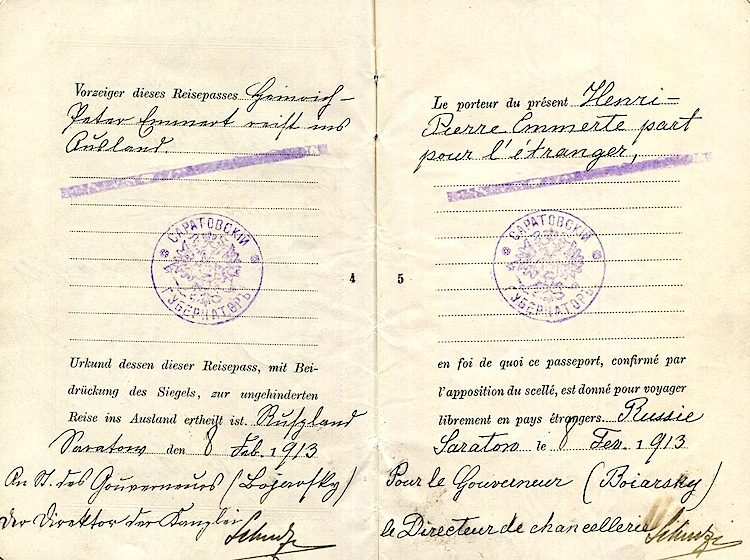 Vorzeiger dieses Reisepasses Heinrich-
Peter Emmert reist ins
Ausland
САРАТОВСКІЙ
ГУБЕРНАТОРЪ
4
Urkund dessen dieser Reisepass, mit Bei-
drückung des Siegels, zur ungehinderten
Reise ins Ausland ertheilt ist. Russland
Saratow den 8 Feb. 1913
An St. des Gouverneurs (Bojarsky)
Der Direktor der Kanzlei
Le porteur du présent Henri-
Pierre Emmerte part
pour l'étranger,
САРАТОВСКІЙ
ГУБЕРНАТОРЪ
5
en foi de quoi ce passeport, confirmé par
l'apposition du scellé, est donné pour voyager
librement en pays étrangers. Russie
Saratow le 8 Fev. 1913
Pour le Gouverneur (Boiarsky)
le Directeur de chancellerie